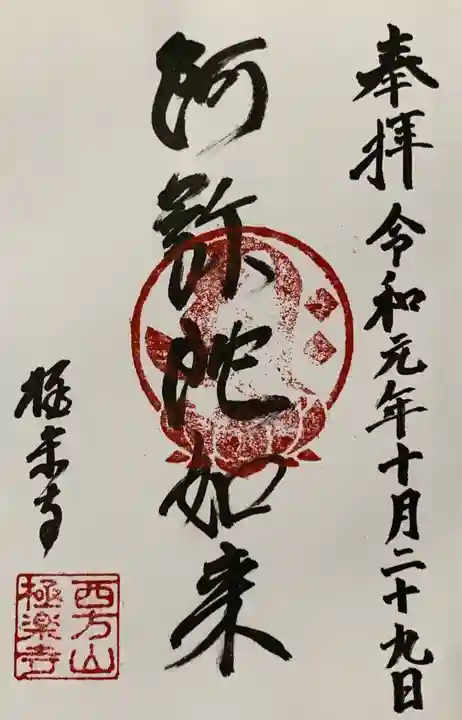 奉拝 令和元年十月二十九日
阿弥陀如来
極楽寺
西方山
極楽寺